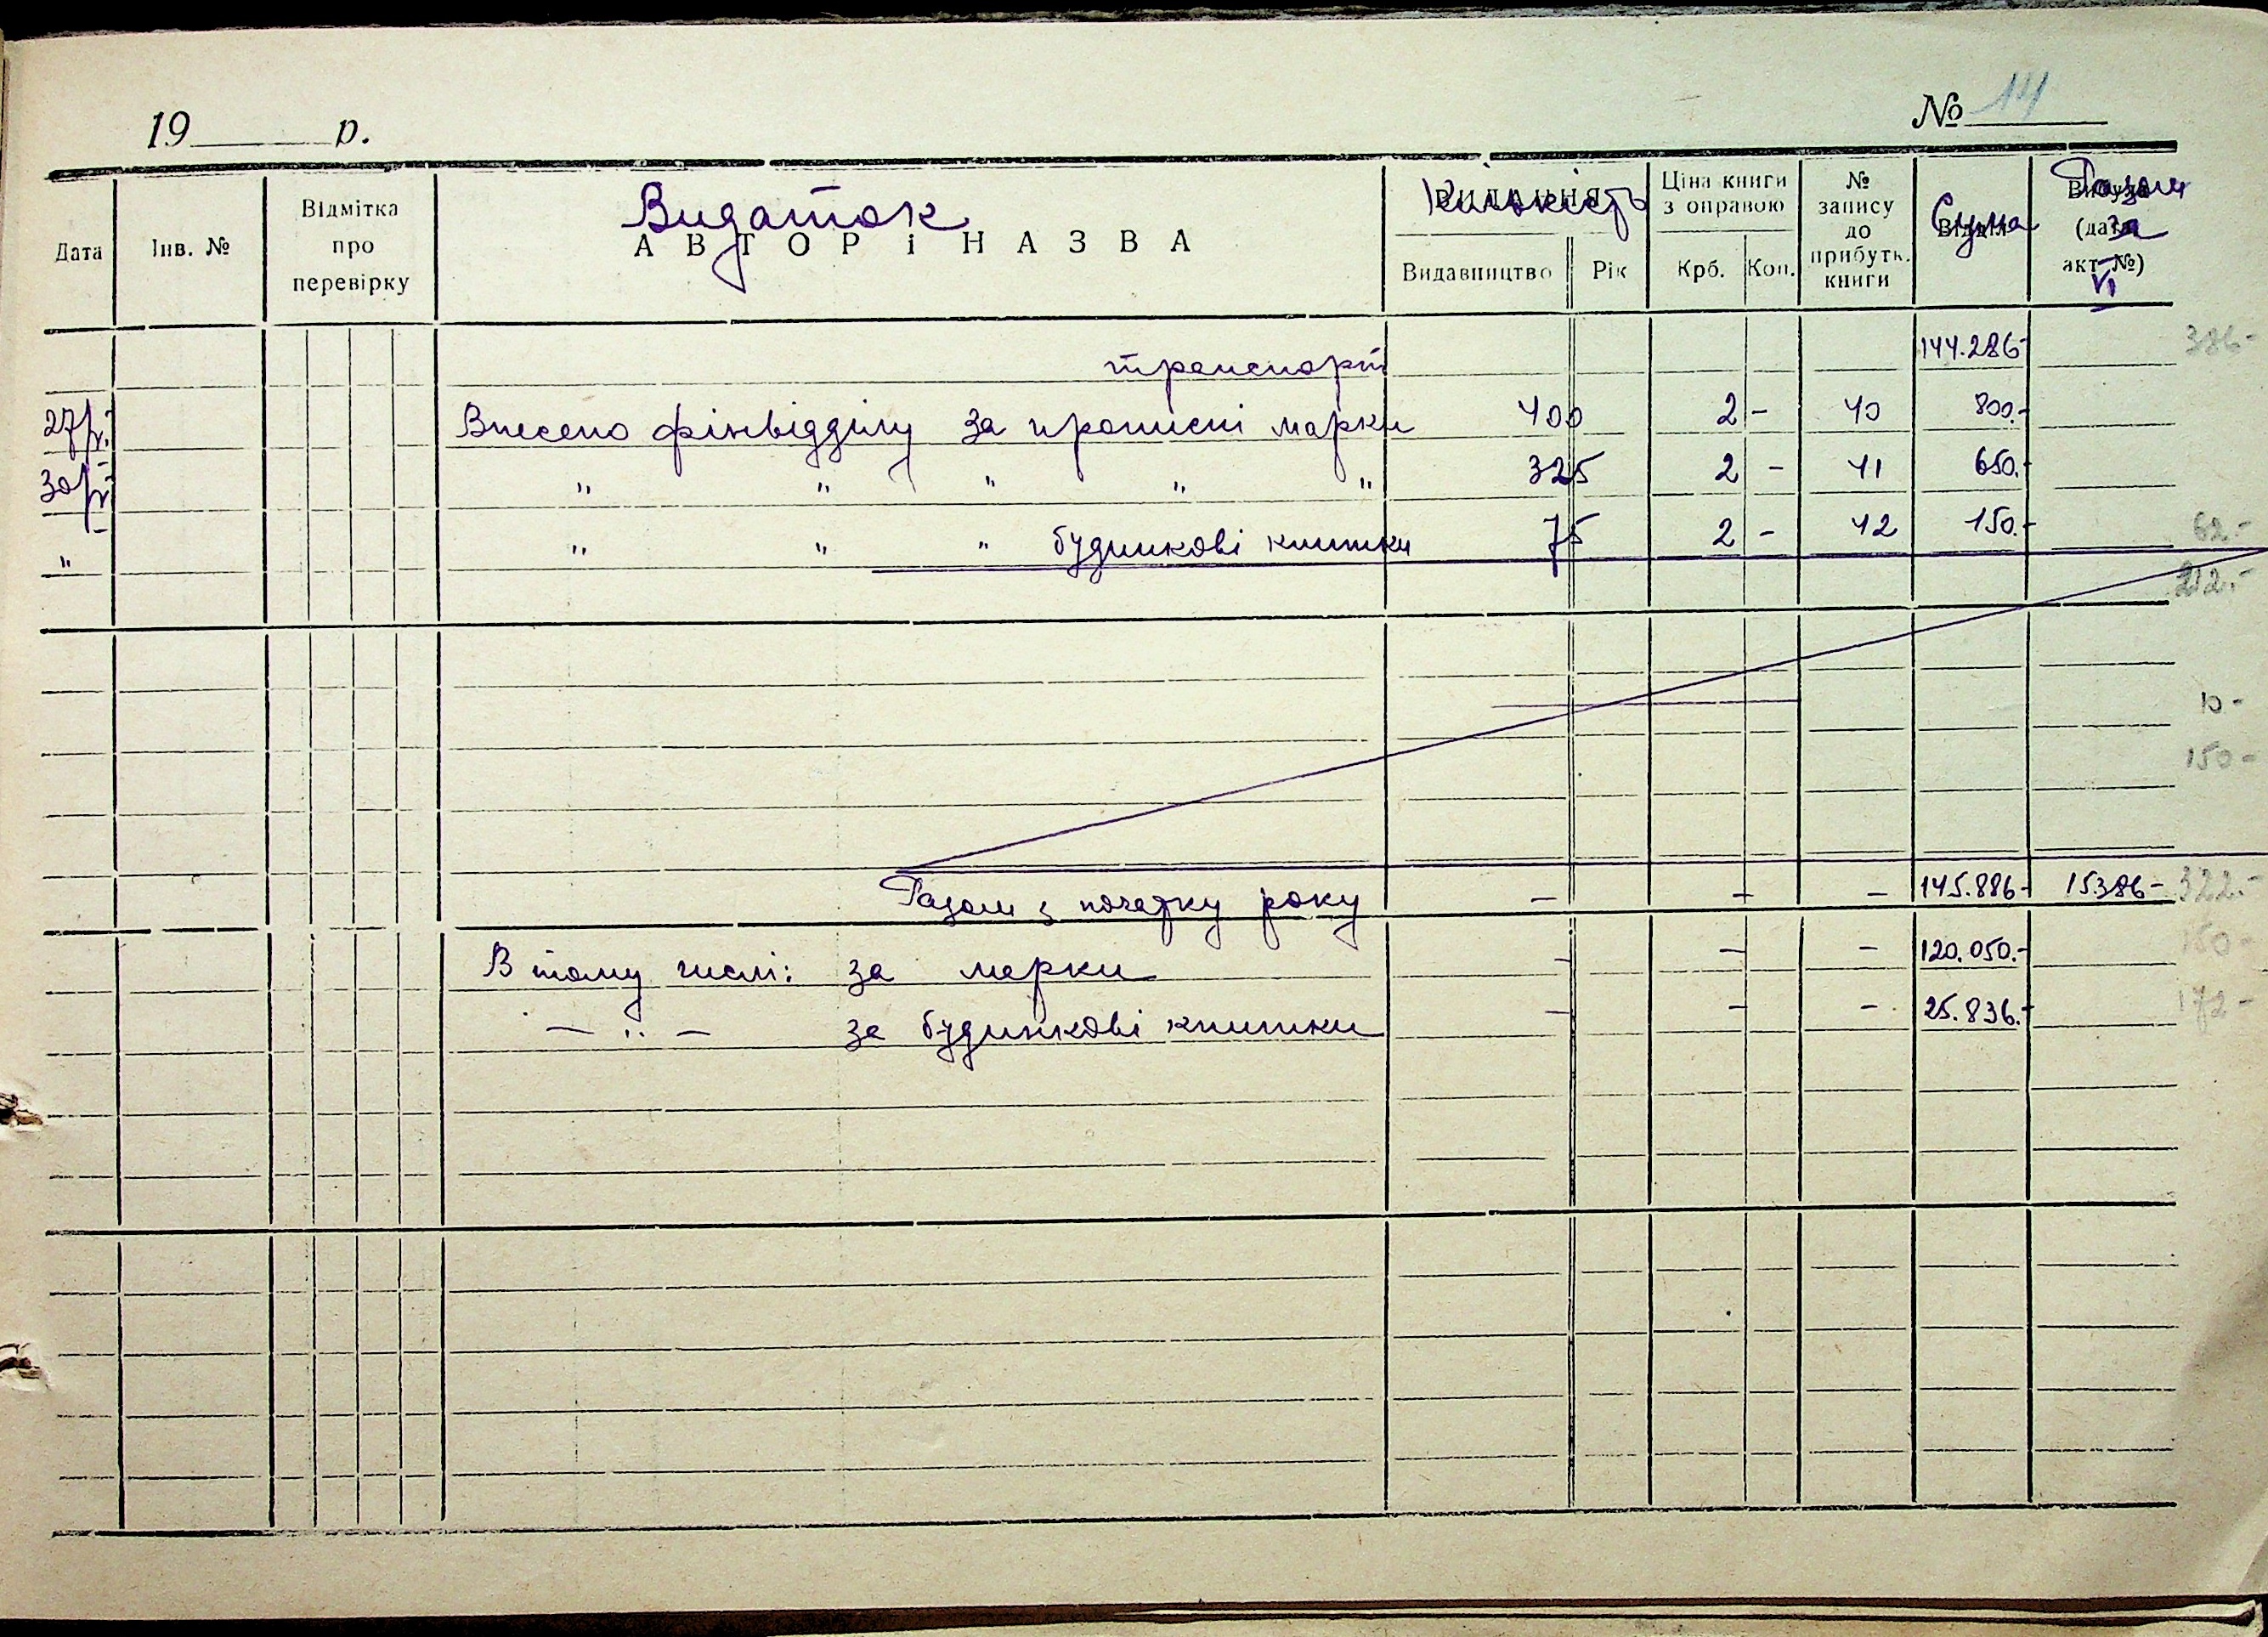 19 р. № 14
Дата Інв. № Відмітка про перевірку АВТОР і НАЗВА Видавництво Рік Ціна книги з оправою Крб. Коп. № запису до прибутк. книги Відділ (дата акт №)
Видаток Кількість Сума Разом за VI
транспорт 144.286- 386-
27/ Внесено фінвідділу за прописні марки 400 2 - 40 800.-
30/ " " " " " 325 2 - 41 650.-
" " " " будинкові книжки 75 2 - 42 150.- 62.-
212.-
10-
150-
Разом з початку року — — — 145.886- 15386- 322.-
В тому числі: за марки — — — 120.050.- 150-
— " — за будинкові книжки — — — 25.836.- 172-